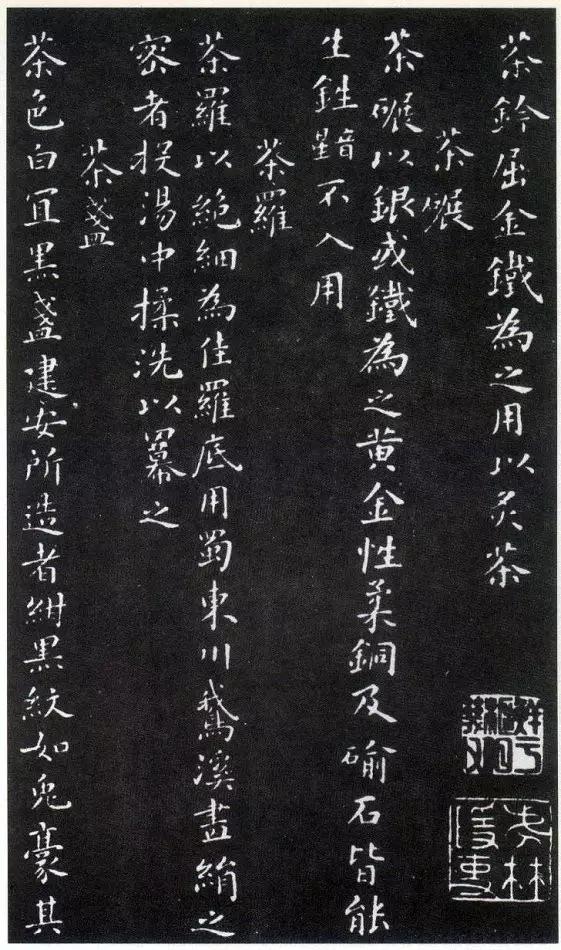 茶鈐屈金鐵為之用以炙茶
茶碾
茶碾以銀或鐵為之黃金性柔銅及石皆能
生鉎黯不入用
茶羅
茶羅以絕細為佳羅底用蜀東川鵝溪畫絹之
密者投湯中揉洗以羃之
茶盞
茶色白宜黑盞建安所造者紺黑紋如兔豪其